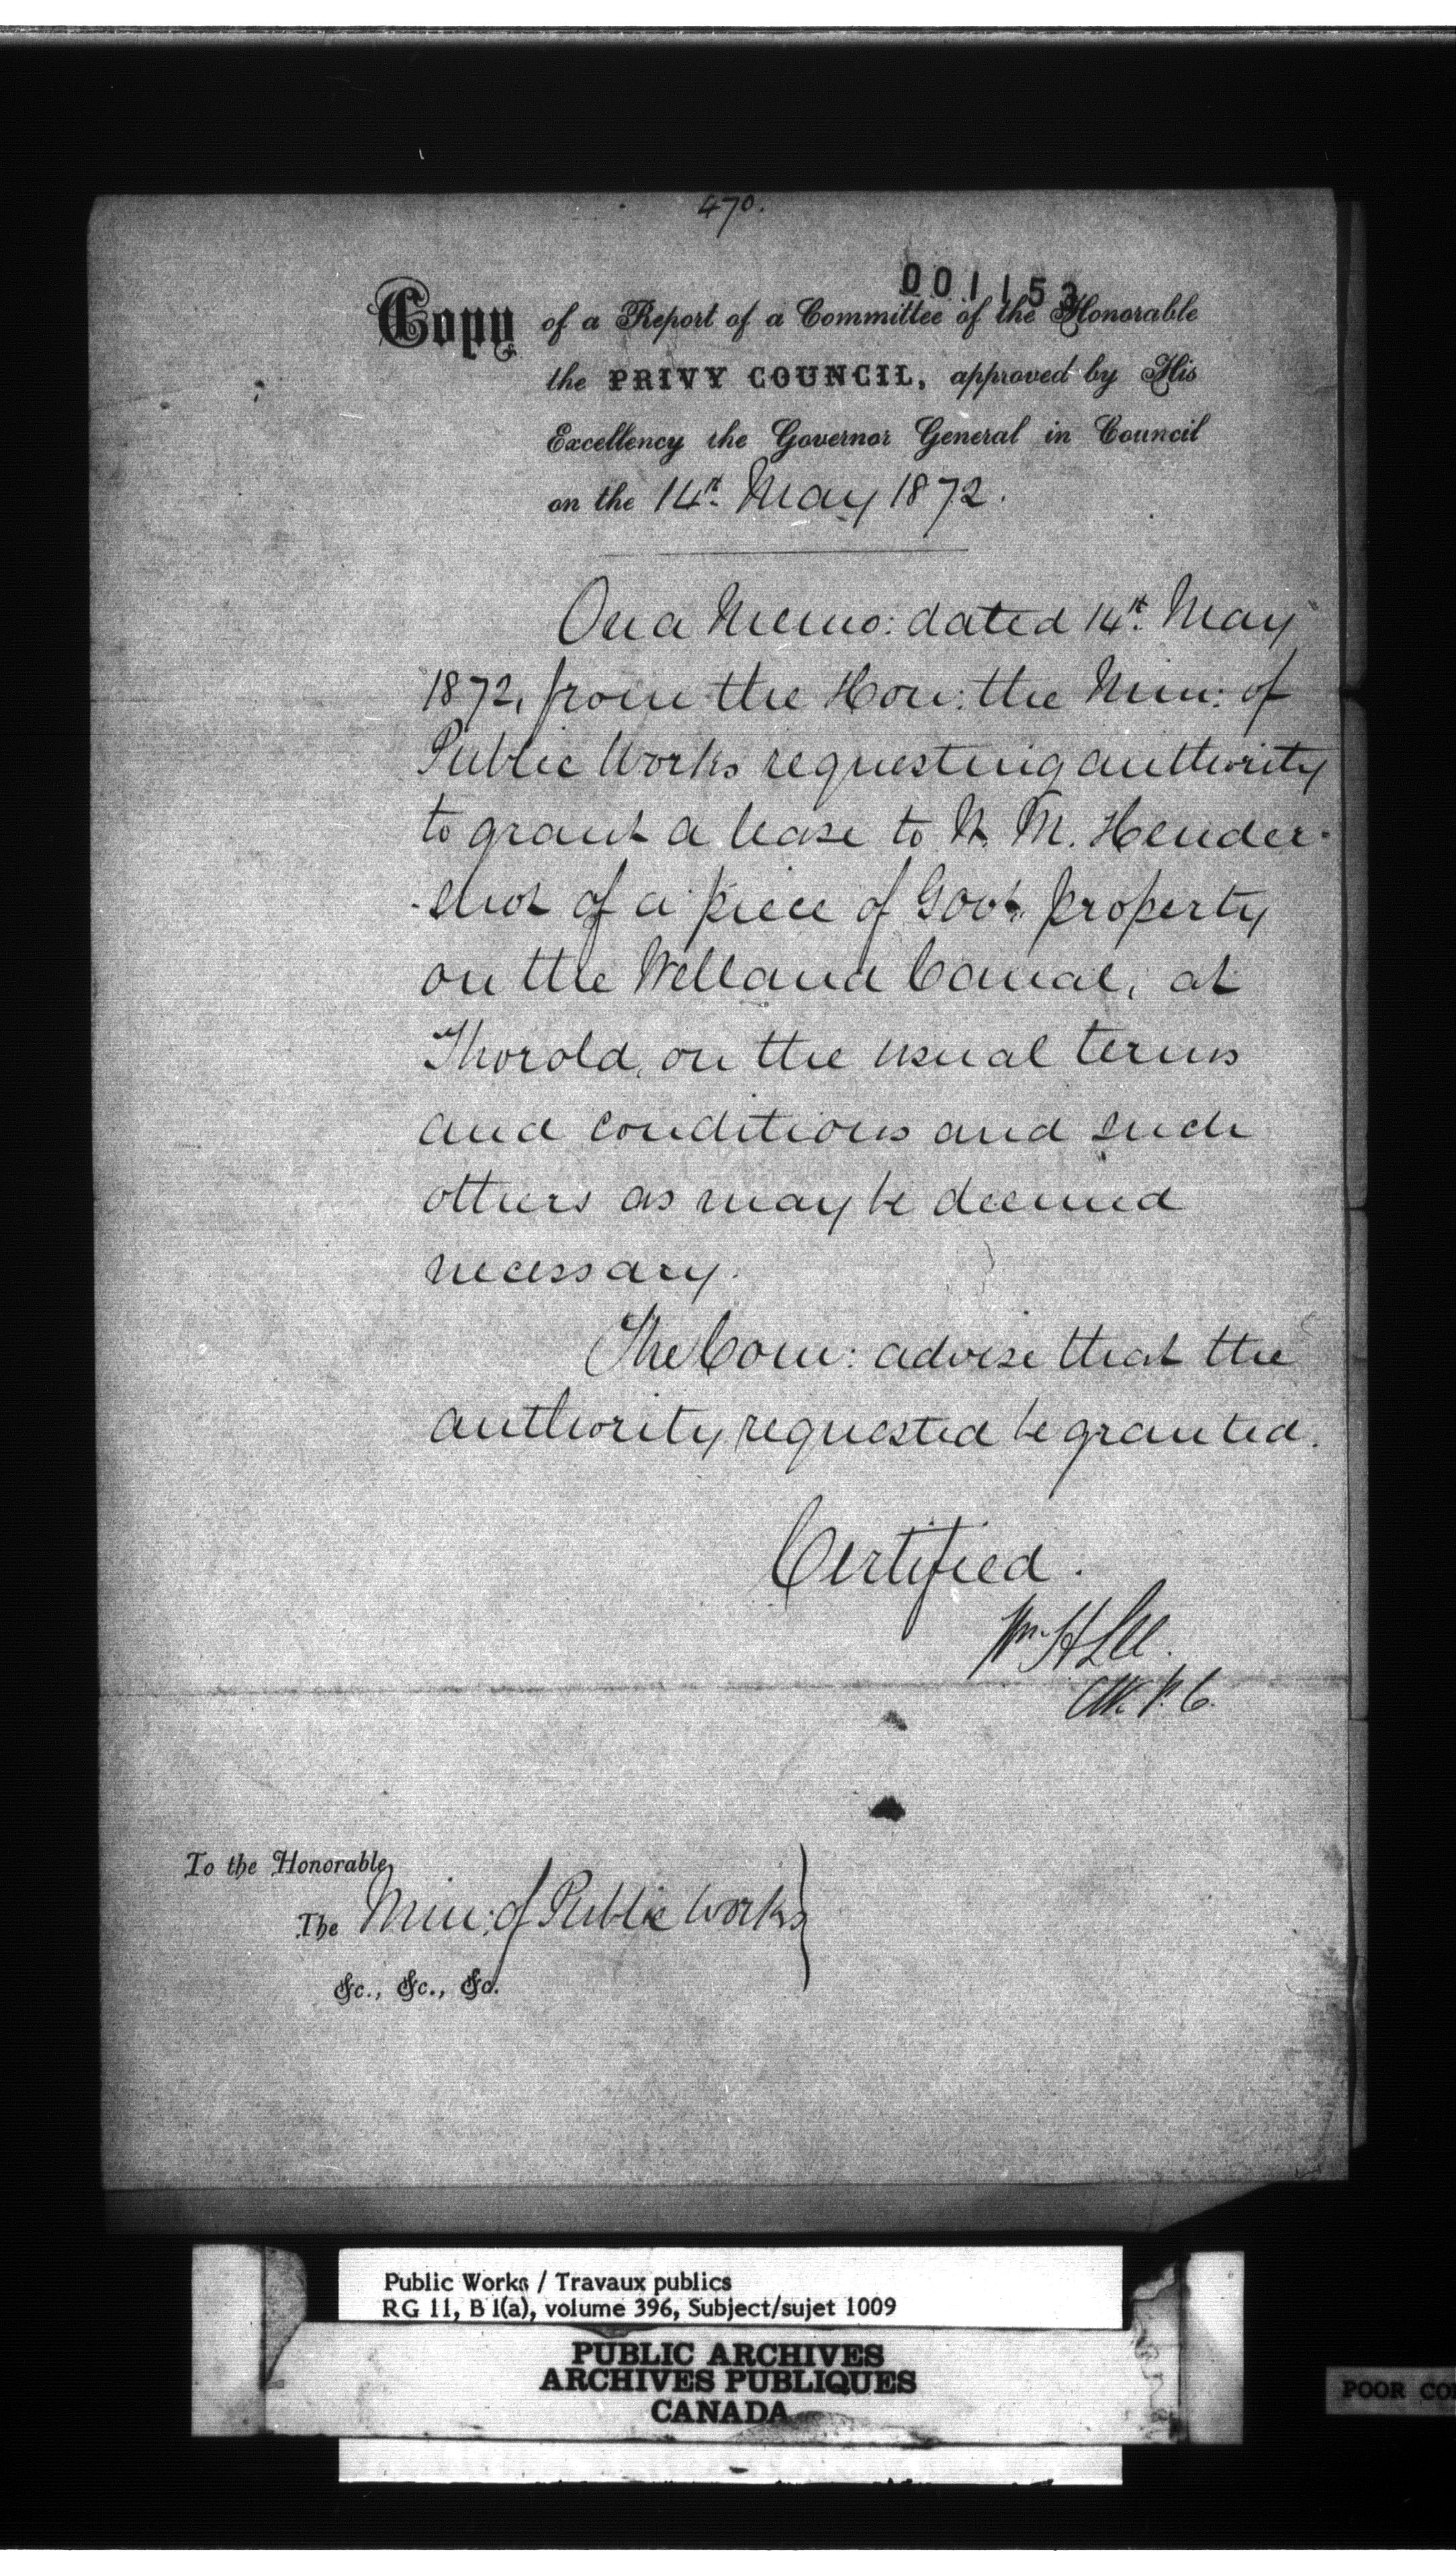 470.
001153
Copy of a Report of a Committee of the Honorable
the PRIVY COUNCIL, approved by His
Excellency the Governor General in Council
on the 14th May 1872.
On a Memo: dated 14th May
1872, from the Hon: the Min: of
Public Works requesting authority
to grant a lease to N. M. Hender-
-shot of a piece of Govt. property
on the Welland Canal, at
Thorold, on the usual terms
and conditions and such
others as may be deemed
necessary.
The Com: advise that the
authority requested be granted.
Certified.
Wm H Lee.
Clk. P. C.
To the Honorable
The Min: of Public Works
&c., &c., &c.
Public Works / Travaux publics
RG 11, B 1(a), volume 396, Subject/sujet 1009
PUBLIC ARCHIVES
ARCHIVES PUBLIQUES
CANADA
POOR CO